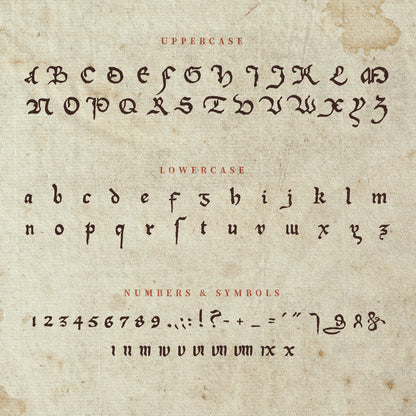 UPPERCASE
A B C D E F G H I J K L M
N O P Q R S T U V W X Y Z
LOWERCASE
a b c d e f g h i j k l m
n o p q r ſ t u v w x y z
NUMBERS & SYMBOLS
1 2 3 4 5 6 7 8 9 . , : ; ! ? - + _ = ' "
ı ıı ııı ıv v vı vıı vııı ıx x